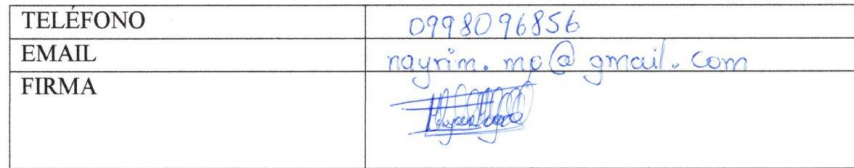 TELÉFONO 0998096856
EMAIL nayrim.mp@gmail.com
FIRMA